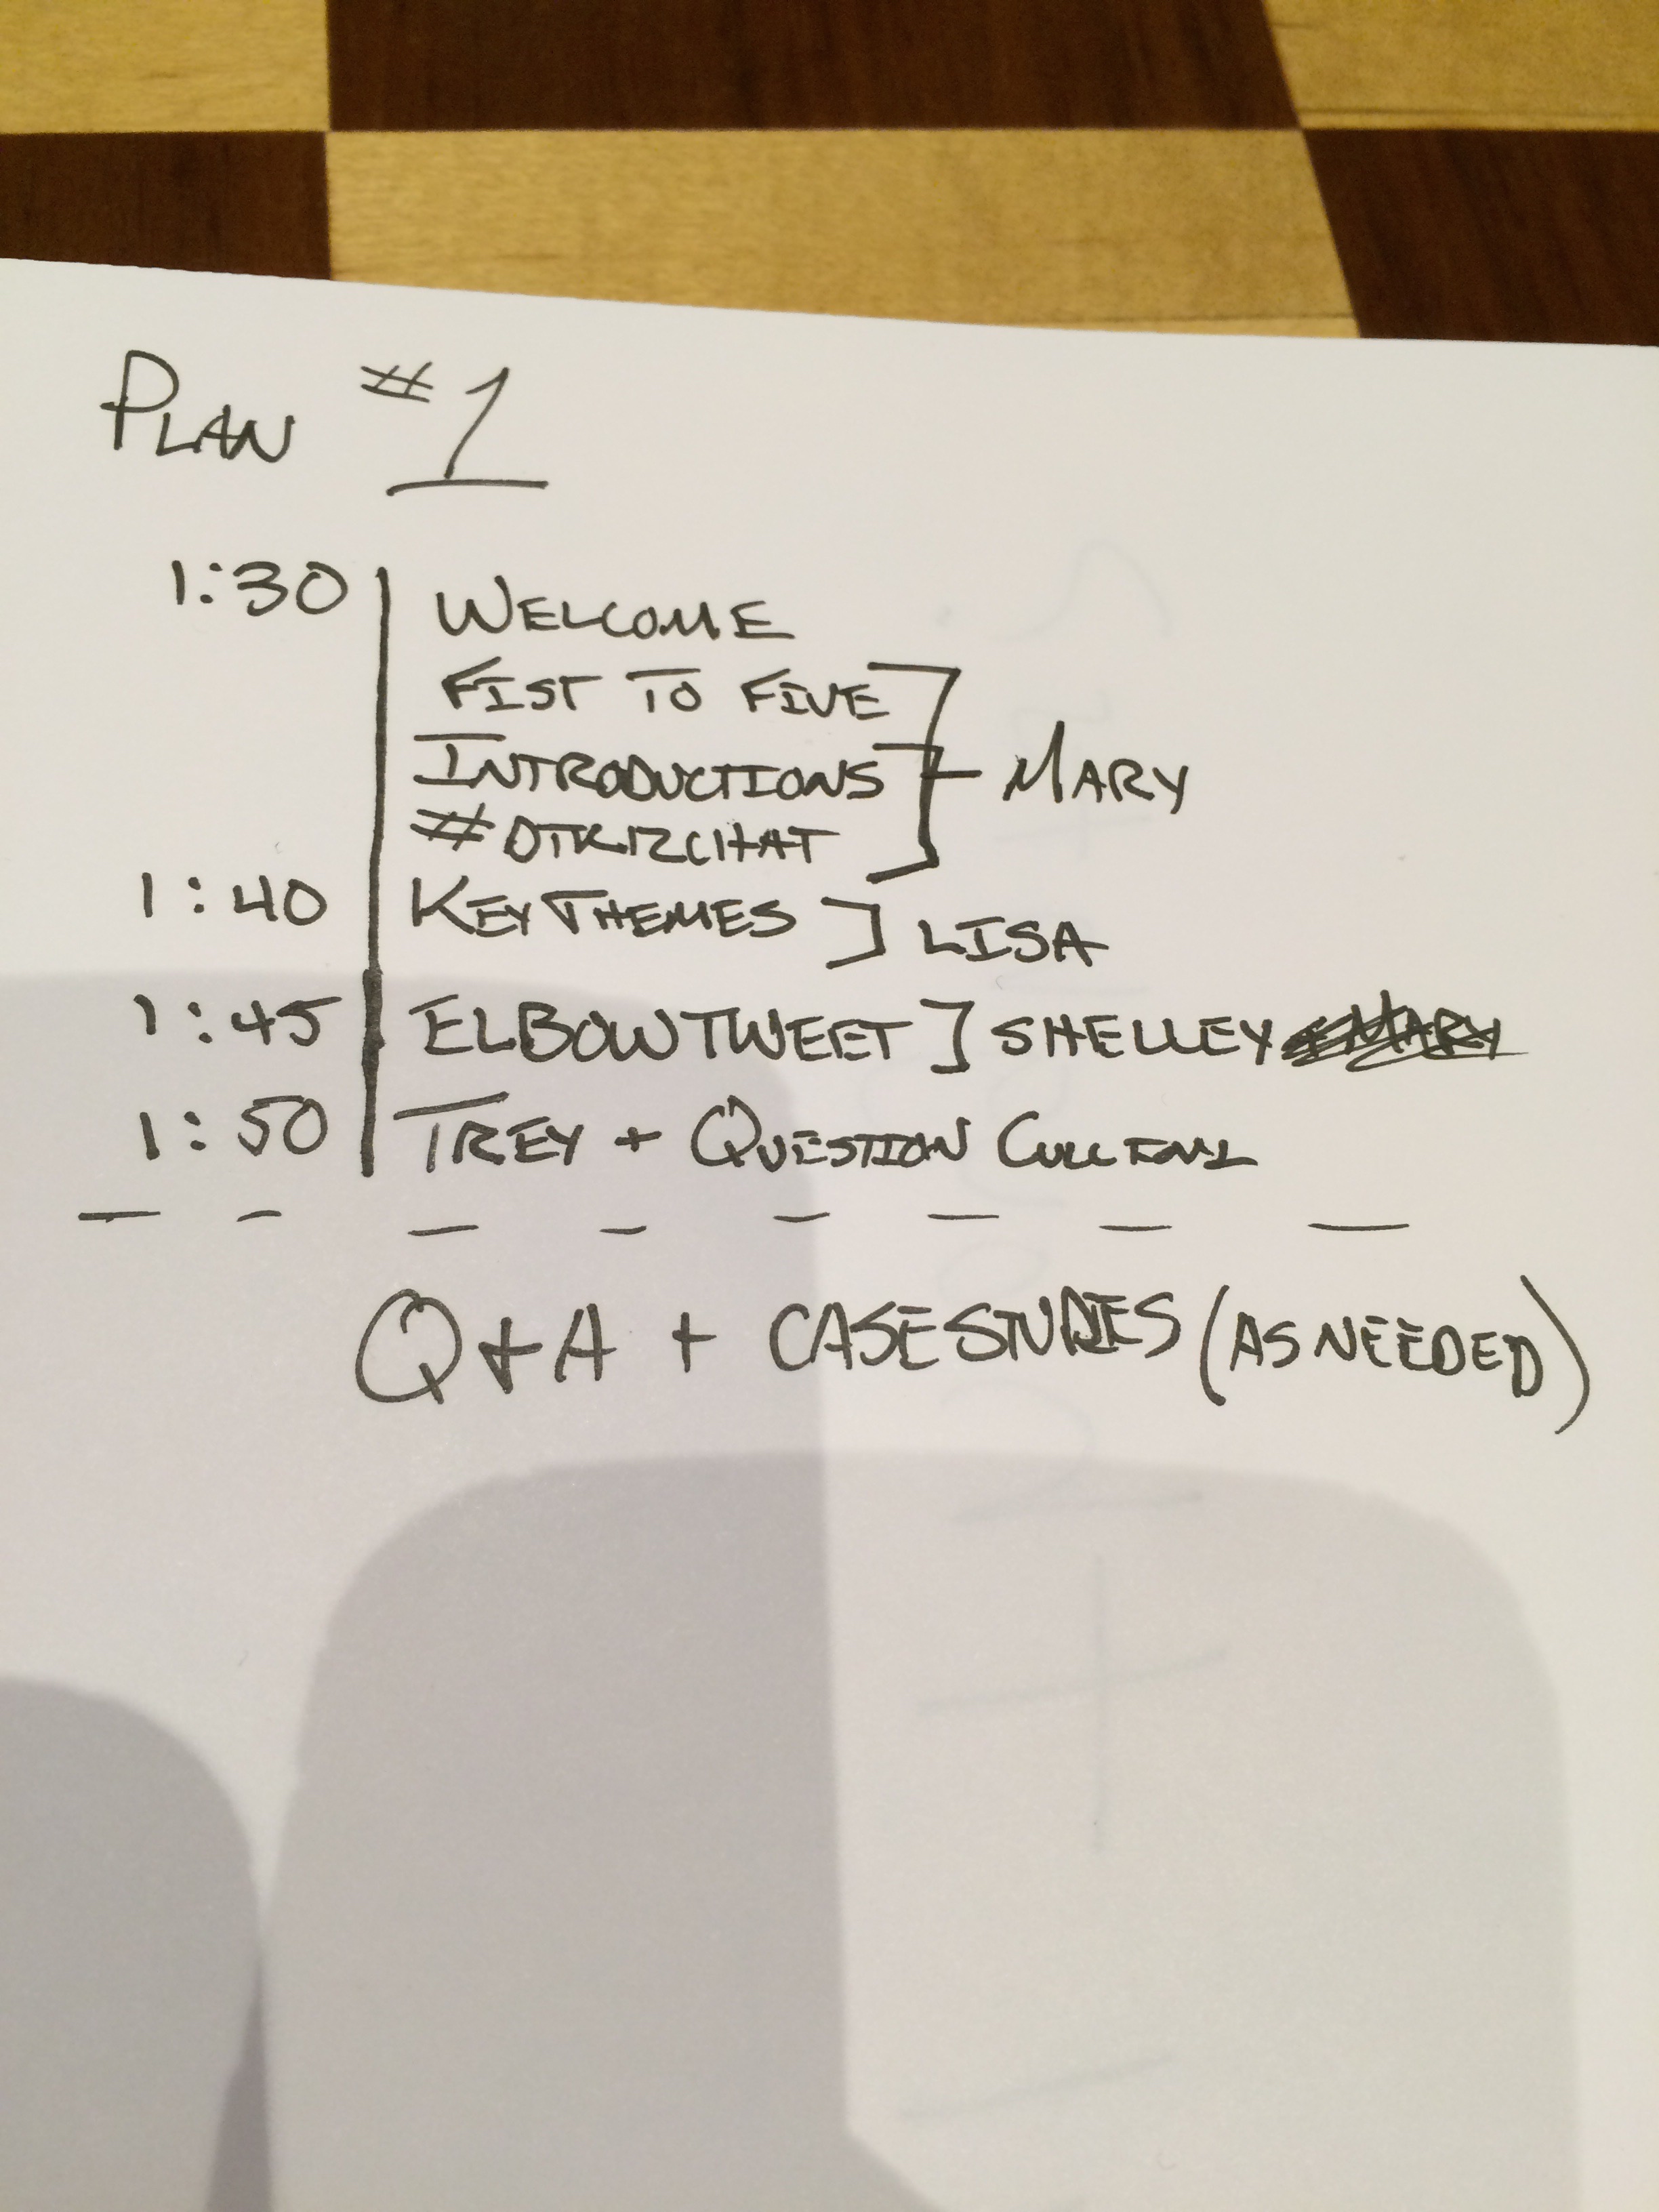 PLAN #1
1:30 WELCOME
FIST TO FIVE
INTRODUCTIONS MARY
#DTK12CHAT
1:40 KEY THEMES ] LISA
1:45 ELBOW TWEET ] SHELLEY
1:50 TREY + QUESTION
Q+A + CASE STUDIES (AS NEEDED)